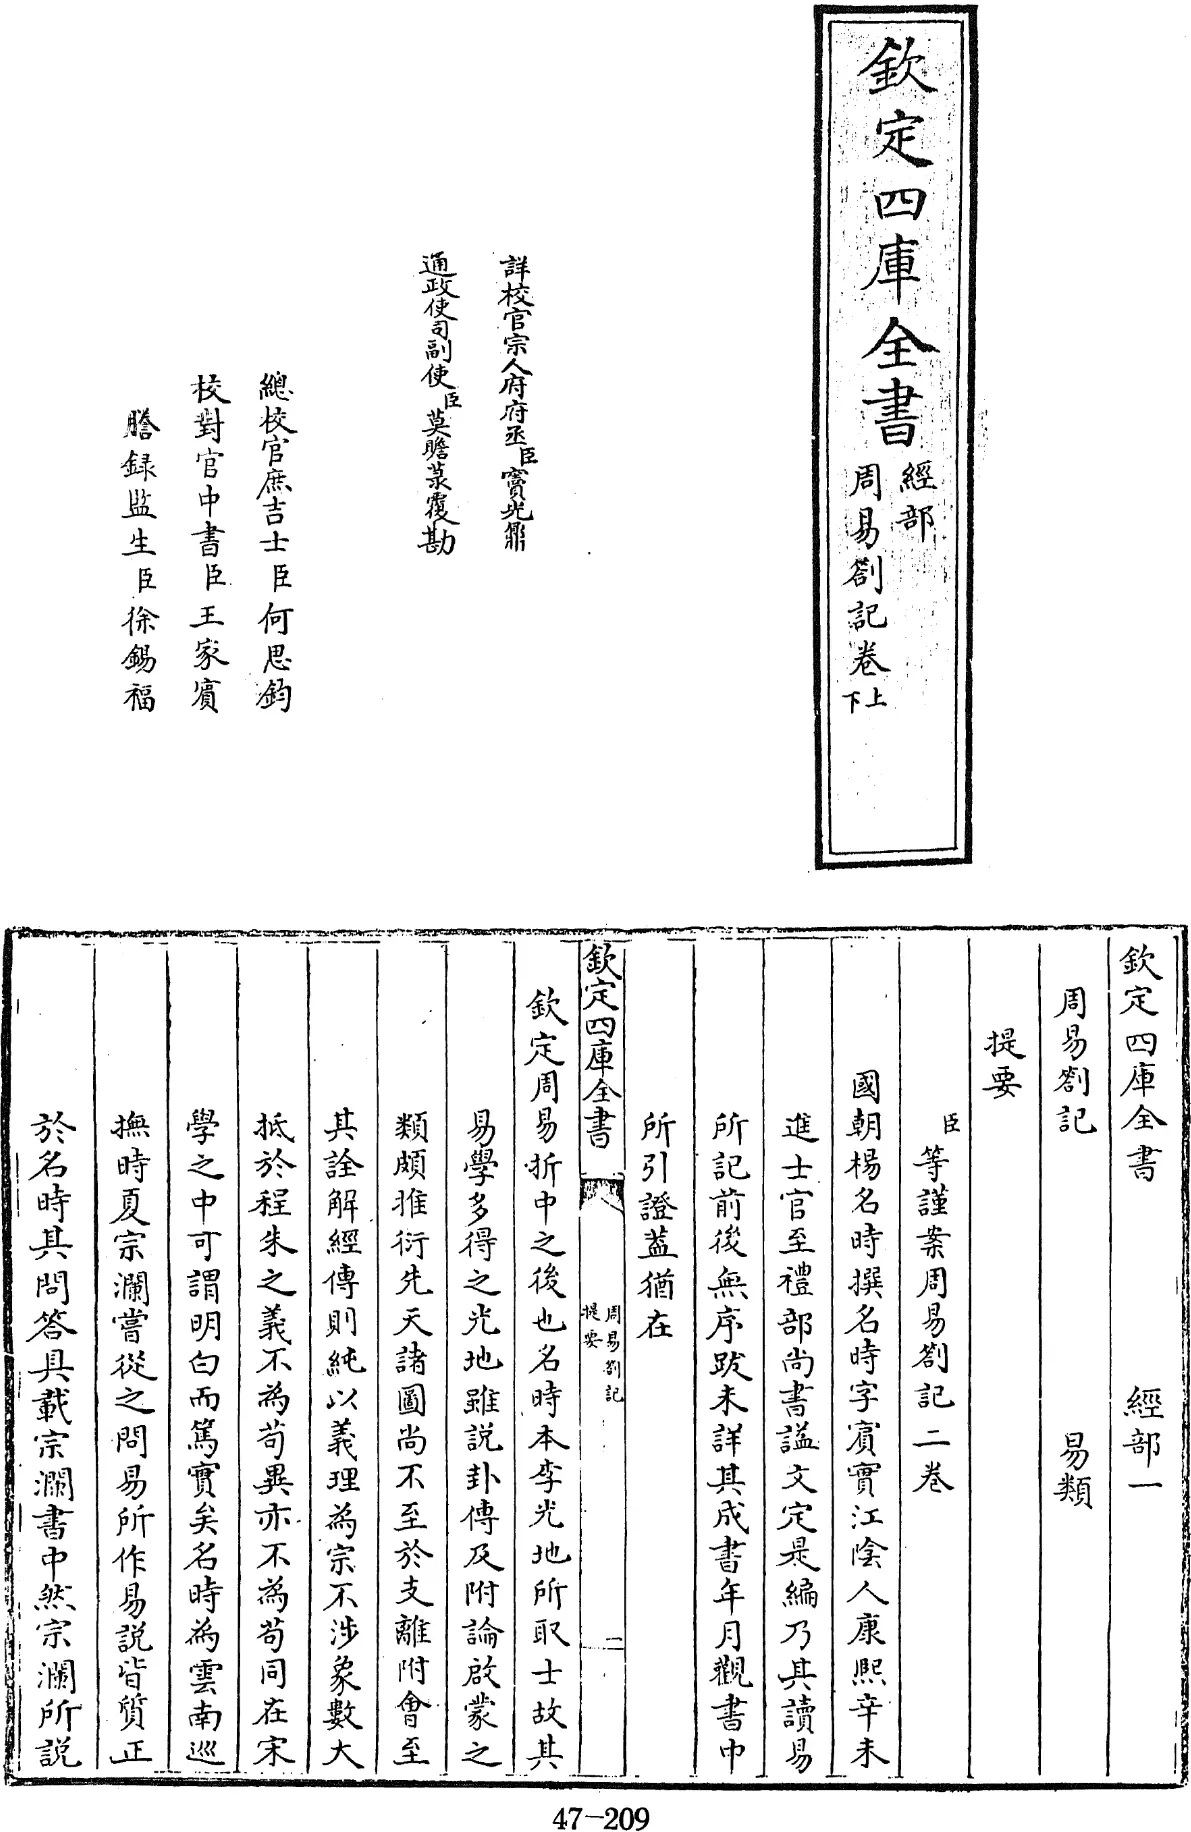 欽定四庫全書
經部
周易劄記卷上下
詳校官宗人府府丞臣竇光鼐
通政使司副使臣莫瞻菉覆勘
總校官庶吉士臣何思鈞
校對官中書臣王家賓
謄録監生臣徐錫福
欽定四庫全書　經部一
周易劄記　易類
提要
臣等謹案周易劄記二卷
國朝楊名時撰名時字賓實江陰人康熙辛未
進士官至禮部尚書諡文定是編乃其讀易
所記前後無序跋未詳其成書年月觀書中
所引證葢猶在
欽定四庫全書
周易劄記
提要
一
欽定周易折中之後也名時本李光地所取士故其
易學多得之光地雖説卦傳及附論啟蒙之
類頗推衍先天諸圖尚不至於支離附會至
其詮解經傳則純以義理為宗不涉象數大
抵於程朱之義不為苟異亦不為苟同在宋
學之中可謂明白而篤實矣名時為雲南巡
撫時夏宗瀾嘗從之問易所作易説皆質正
於名時其問答具載宗瀾書中然宗瀾所説
47-209